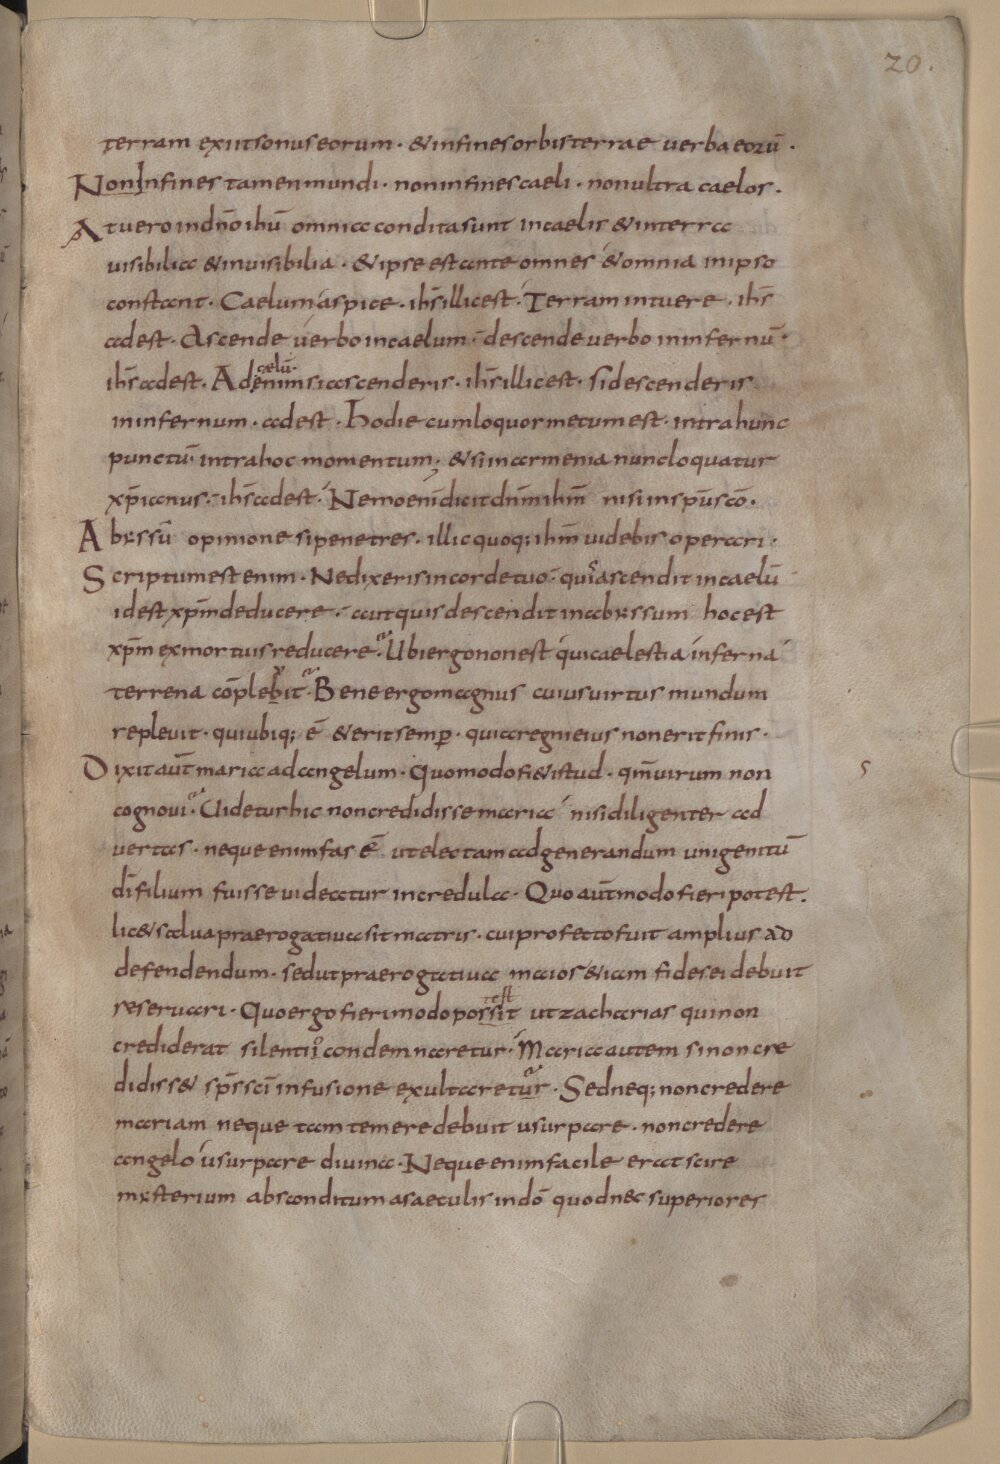 20.
terram exiit sonus eorum · & in fines orbis terrae uerba eorū ·
Non In fines tamen mundi · non in fines caeli · non ultra caelos ·
At uero in dn̄o ihū omnia condita sunt in caelis & in terra
uisibilia & inuisibilia · & ipse est ante omnes & omnia in ipso
constant · Caelum aspice · ihs̄ illic est · Terram intuere · ihs̄
adest · Ascende uerbo in caelum · descende uerbo in infernū ·
ihs̄ adest · Ad enim caelū si ascenderis · ihs̄ illic est · si descenderis
in infernum · adest · Hodie cum loquor mecum est · intra hunc
punctū · intra hoc momentum ; & si in armenia nunc loquatur
xp̄ianus · ihs̄ adest · Nemo enī dicit dn̄m ihm̄ nisi in sp̄u sc̄o ·
Abyssū opinione si penetres · illic quoq; ihm̄ uidebis operari ·
Scriptum est enim · Ne dixeris in corde tuo · quis ascendit in caelū
id est xp̄m deducere · aut quis descendit in abyssum hoc est
xp̄m ex mortuis reducere · Ubi ergo non est qui caelestia inferna
terrena cōplebit · Bene ergo magnus cuius uirtus mundum
repleuit · qui ubiq; ē & erit semp̄ · quia regni eius non erit finis ·
Dixit aut̄ maria ad angelum · Quomodo fi& istud · qm̄ uirum non
s
cognoui · Uidetur hic non credidisse maria nisi diligenter ad
uertas · neque enim fas ē ut electam ad generandum unigenitū
dī filium fuisse uideatur incredula · Quo aut̄ modo fieri potest ·
lic& salua praerogatiua sit matris · cui profecto fuit amplius ad
defendendum · sed ut praerogatiua maios & iam fides ei debuit
reseruari · Quo ergo fieri modo possit est ut zacharias qui non
crediderat silentio condemnaretur · Maria autem si non cre
didiss& sp̄s sc̄i infusione exultaretur · Sed neq; non credere
mariam neque tam temere debuit usurpare · non credere
angelo usurpare diuina · Neque enim facile erat scire
mysterium absconditum a saeculis in dō quod nec superiores